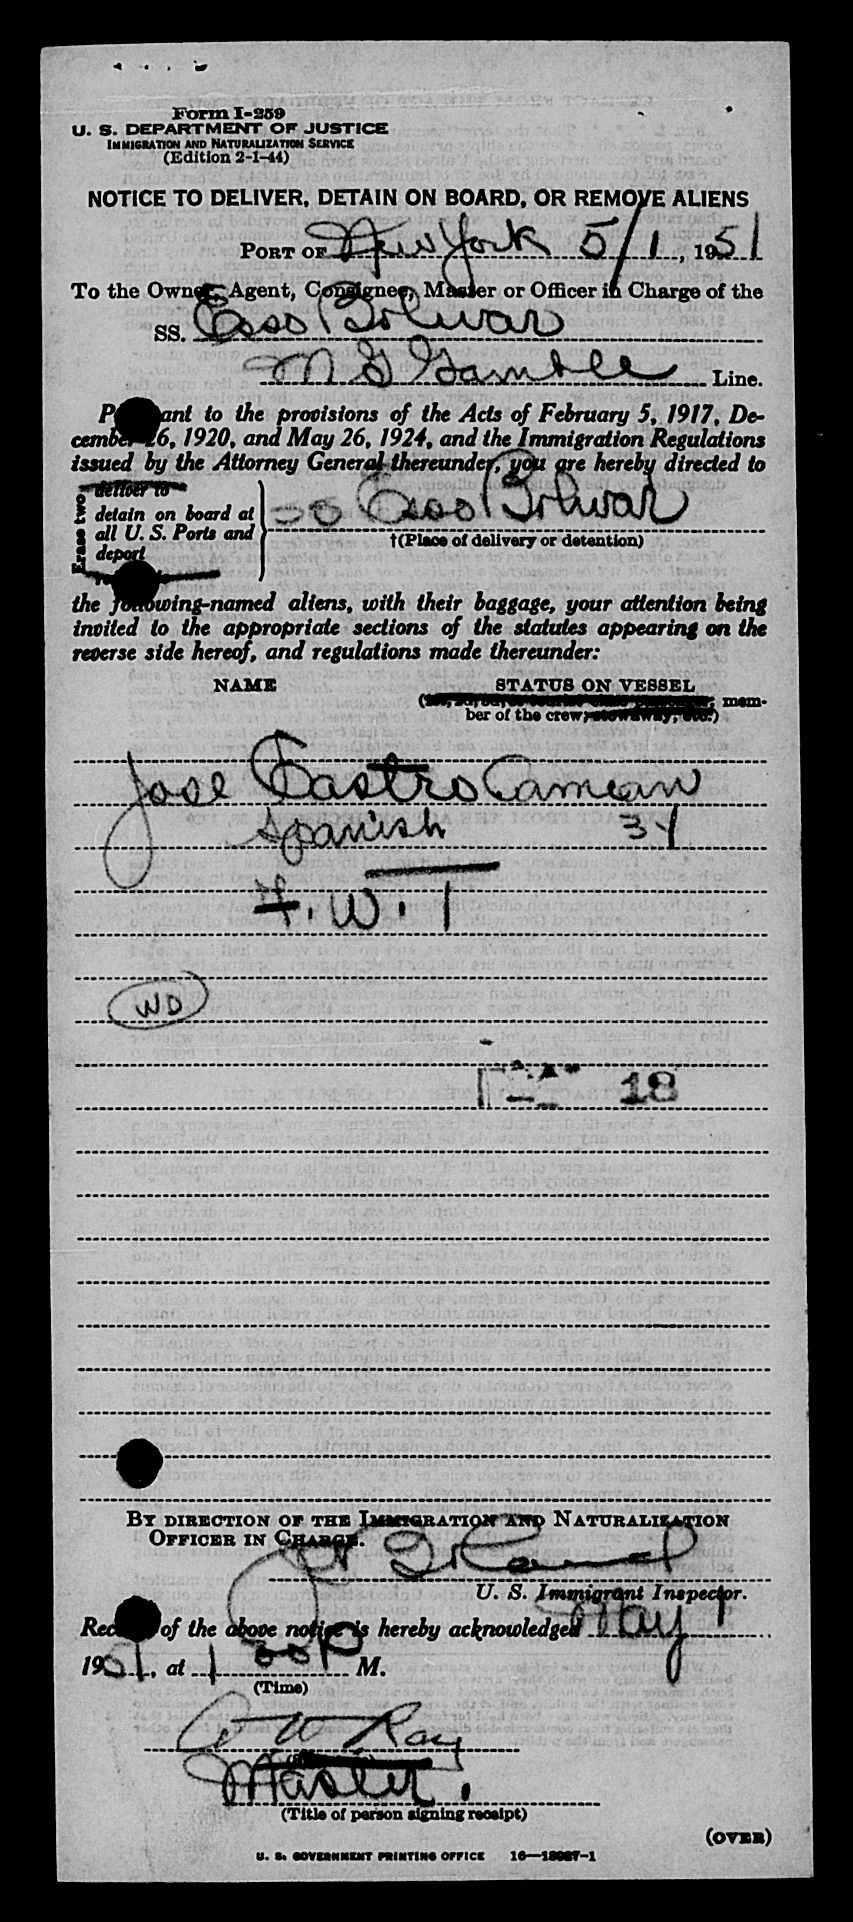 Form I-259
U. S. DEPARTMENT OF JUSTICE
IMMIGRATION AND NATURALIZATION SERVICE
(Edition 2-1-44)
NOTICE TO DELIVER, DETAIN ON BOARD, OR REMOVE ALIENS
PORT OF New York 5/1, 1951
To the Owner, Agent, Consignee, Master or Officer in Charge of the
SS. Esso Bolivar
M G Gamble Line.
P ant to the provisions of the Acts of February 5, 1917, De-
cember 26, 1920, and May 26, 1924, and the Immigration Regulations
issued by the Attorney General thereunder, you are hereby directed to
Erase two
deliver to
detain on board at
all U. S. Ports and
deport
SS Esso Bolivar
†(Place of delivery or detention)
the following-named aliens, with their baggage, your attention being
invited to the appropriate sections of the statutes appearing on the
reverse side hereof, and regulations made thereunder:
NAME STATUS ON VESSEL
mem-
ber of the crew, stowaway, etc.)
Jose Castro Camean
Spanish 34
W. T
WD
18
BY DIRECTION OF THE IMMIGRATION AND NATURALIZATION
OFFICER IN CHARGE.
U. S. Immigrant Inspector.
Rec of the above notice is hereby acknowledged May 1
1951, at 1 30 P M.
(Time)
W Ray
Master.
(Title of person signing receipt)
(OVER)
U. S. GOVERNMENT PRINTING OFFICE 16—18087-1